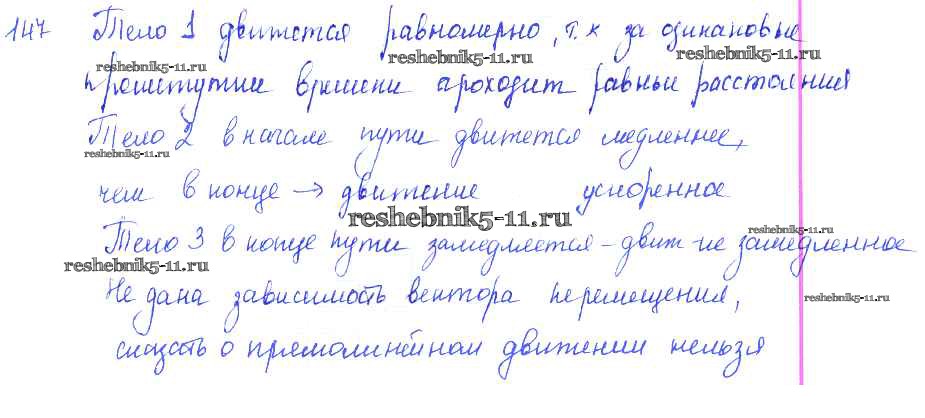 147 Тело 1 движется равномерно, т.к за одинаковые
reshebnik5-11.ru
reshebnik5-11.ru
промежутки времени проходит равные расстояния
Тело 2 в начале пути движется медленнее,
reshebnik5-11.ru
чем в конце → движение ускоренное
reshebnik5-11.ru
Тело 3 в конце пути замедляется - движ-ие замедленное
reshebnik5-11.ru
reshebnik5-11.ru
Не дана зависимость вектора перемещения,
reshebnik5-11.ru
сказать о прямолинейном движении нельзя